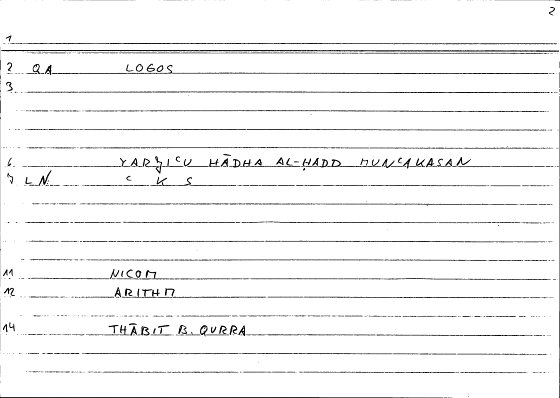 2
1
2 QA LOGOS
3
6 YARJIʿU HĀDHA AL-ḤADD MUNʿAKASAN
7 LN: ʿ K S
11 NICOM
12 ARITHM
14 THĀBIT B. QURRA